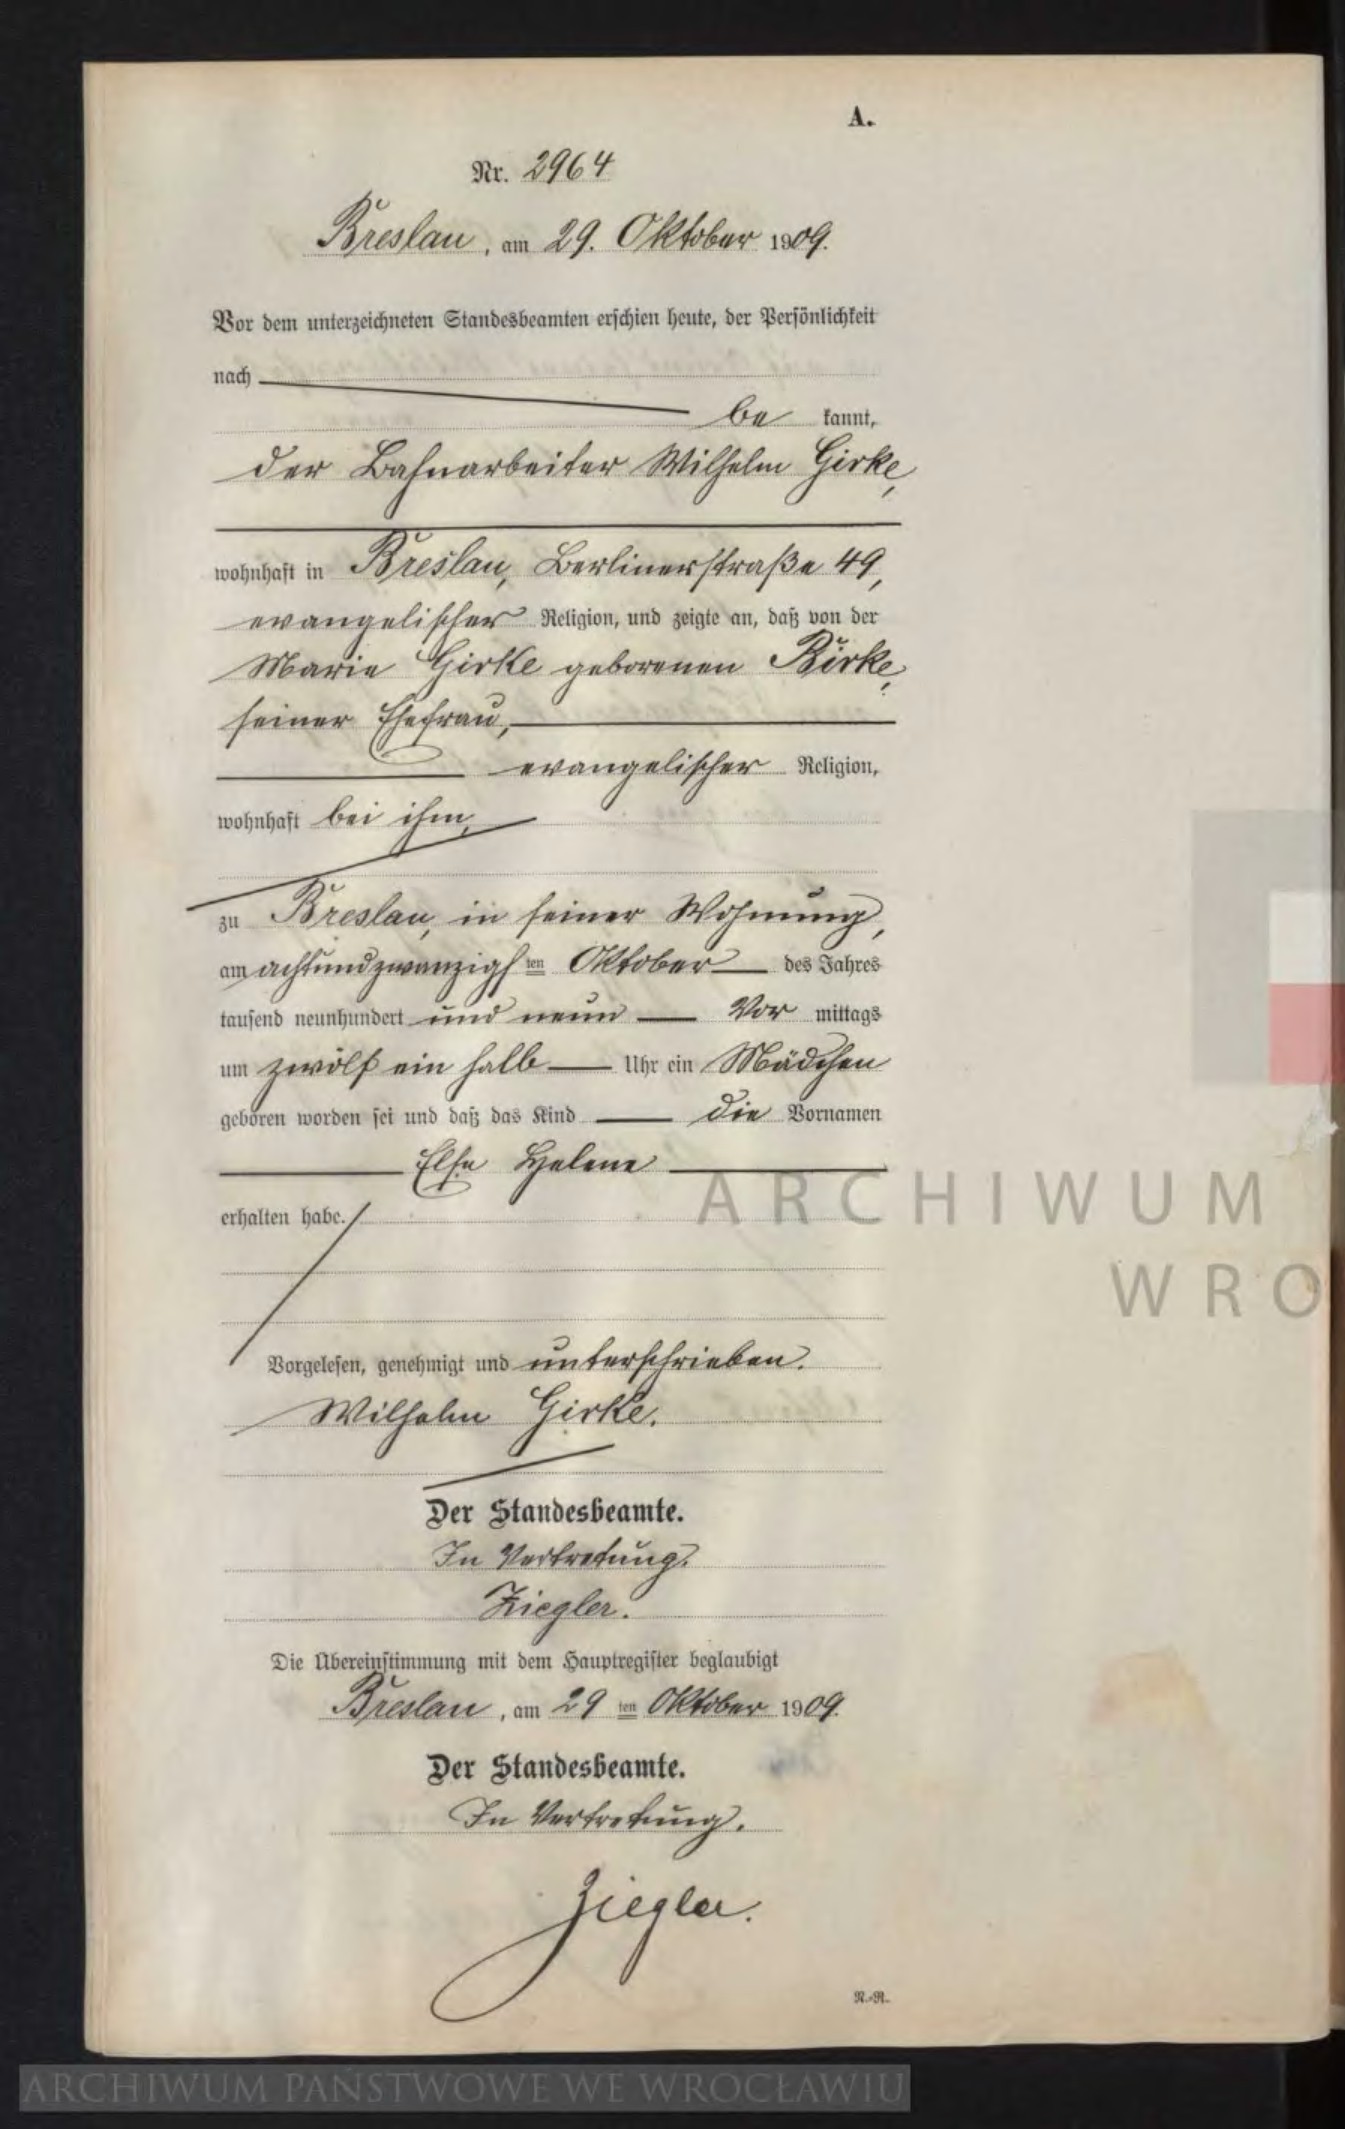 A.
Nr. 2964
Breslau, am 29. Oktober 1909.
Vor dem unterzeichneten Standesbeamten erschien heute, der Persönlichkeit
nach
be kannt,
der Bahnarbeiter Wilhelm Girke,
wohnhaft in Breslau, Berlinerstraße 49,
evangelischer Religion, und zeigte an, daß von der
Marie Girke geborenen Birke,
seiner Ehefrau,
evangelischer Religion,
wohnhaft bei ihm,
zu Breslau, in seiner Wohnung,
am achtundzwanzigsten Oktober des Jahres
tausend neunhundert und neun Vor mittags
um zwölf ein halb Uhr ein Mädchen
geboren worden sei und daß das Kind die Vornamen
Else Helene
erhalten habe.
Vorgelesen, genehmigt und unterschrieben.
Wilhelm Girke.
Der Standesbeamte.
In Vertretung.
Ziegler.
Die Übereinstimmung mit dem Hauptregister beglaubigt
Breslau, am 29 ten Oktober 1909.
Der Standesbeamte.
In Vertretung.
Ziegler.
R.-R.
ARCHIWUM
WRO
ARCHIWUM PAŃSTWOWE WE WROCŁAWIU